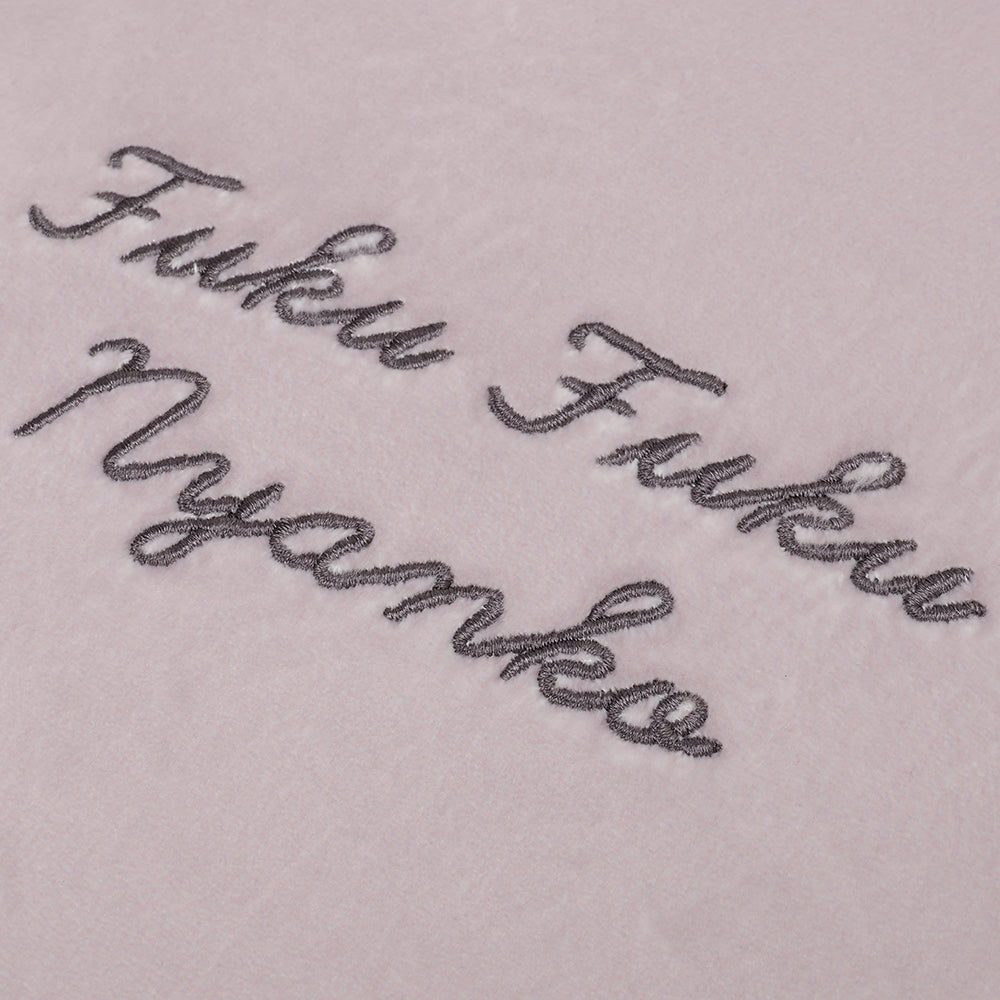 Fuku Fuku
Nyanko